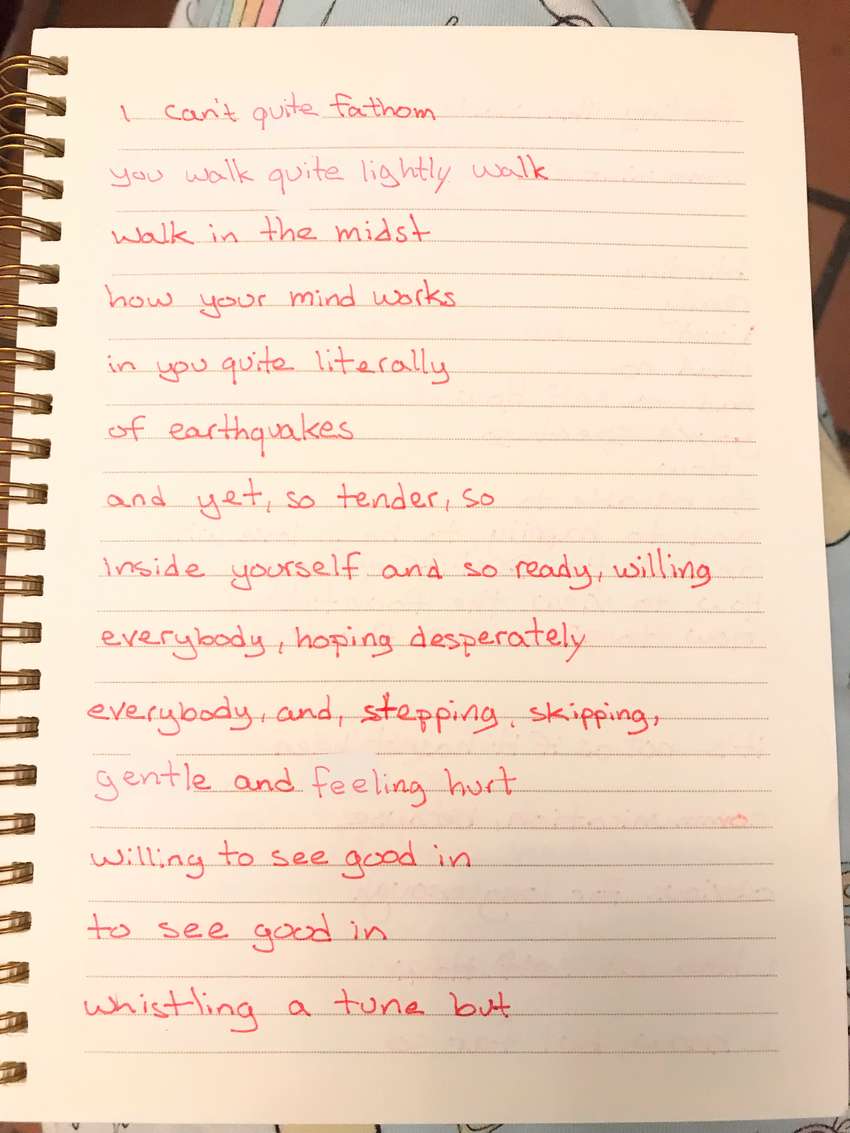 I can't quite fathom
you walk quite lightly walk
walk in the midst
how your mind works
in you quite literally
of earthquakes
and yet, so tender, so
Inside yourself and so ready, willing
everybody, hoping desperately
everybody, and, stepping, skipping,
gentle and feeling hurt
willing to see good in
to see good in
whistling a tune but